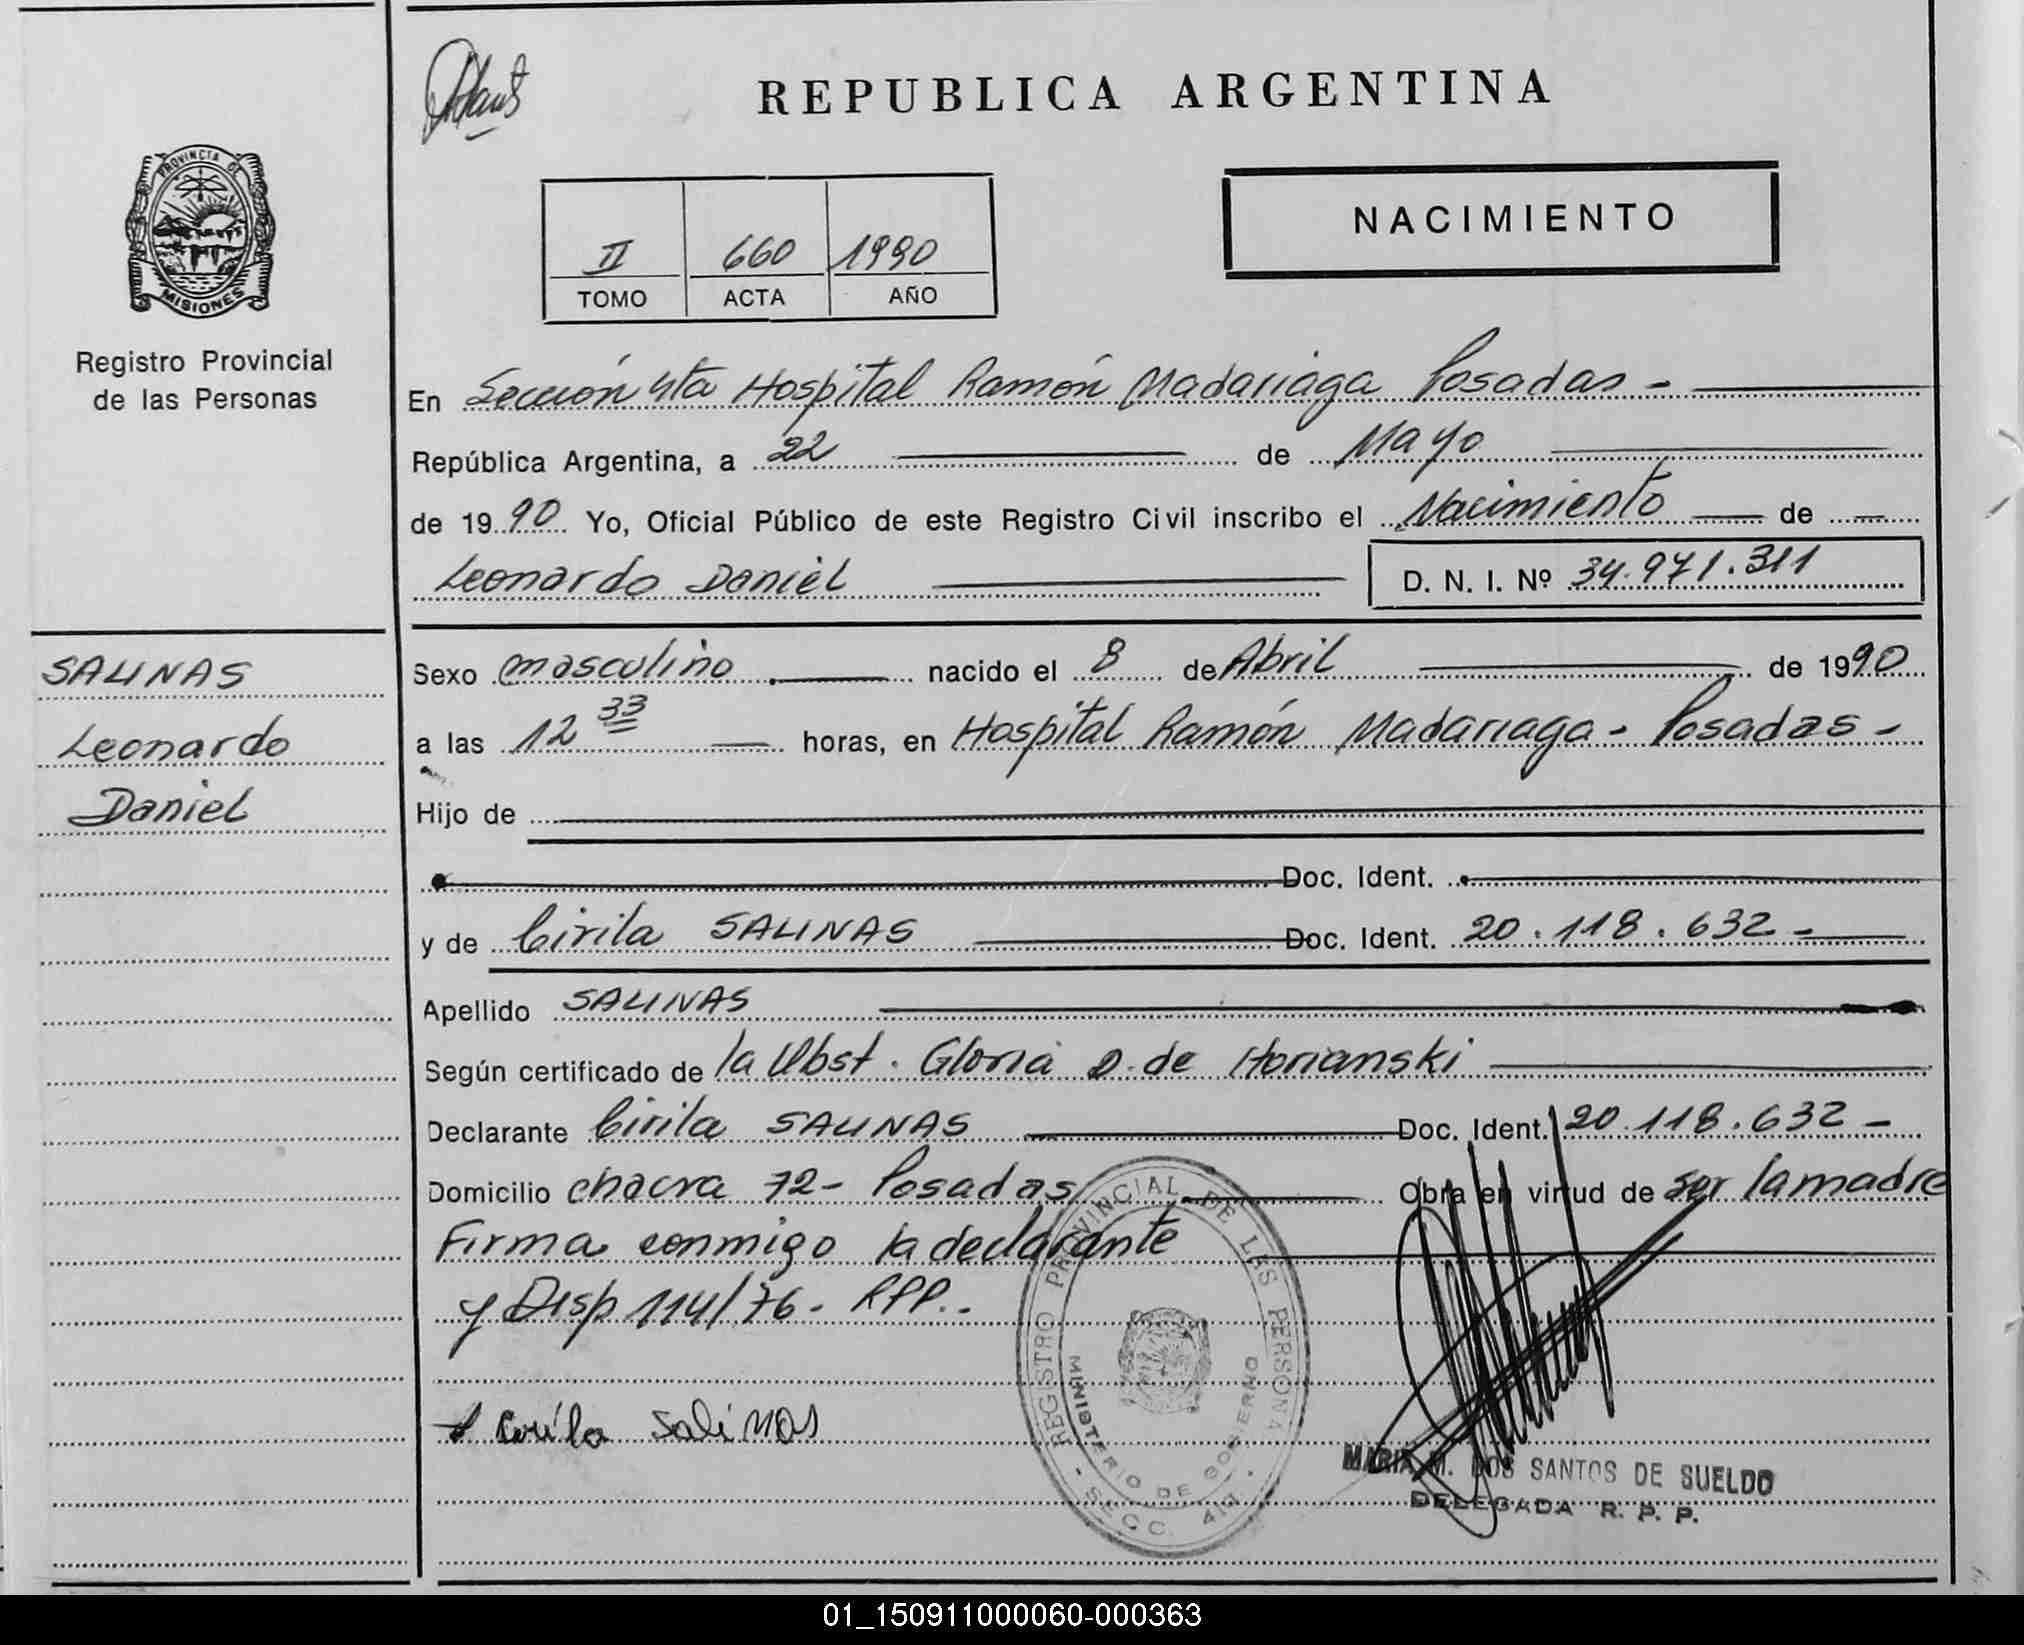 REPUBLICA ARGENTINA
PROVINCIA DE
MISIONES
Registro Provincial
de las Personas
II 660 1990
TOMO ACTA AÑO
NACIMIENTO
En Sección 4ta Hospital Ramón Madariaga Posadas -
República Argentina, a 22 de Mayo
de 1990 Yo, Oficial Público de este Registro Civil inscribo el Nacimiento de
Leonardo Daniel D. N. I. Nº 34.971.311
SALINAS
Leonardo
Daniel
Sexo masculino nacido el 8 de Abril de 1990
a las 12 33 horas, en Hospital Ramón Madariaga - Posadas -
Hijo de
Doc. Ident.
y de Cirila SALINAS Doc. Ident. 20.118.632 -
Apellido SALINAS
Según certificado de la Obst. Gloria D. de Horianski
Declarante Cirila SALINAS Doc. Ident. 20.118.632 -
Domicilio chacra 72 - Posadas Obra en virtud de ser la madre
Firma conmigo la declarante
y Disp 114/76 - RPP. -
REGISTRO PROVINCIAL DE LAS PERSONAS
MINISTERIO DE GOBIERNO
- SECC. 4ta. -
Cirila Salinas
MARIA M. DOS SANTOS DE SUELDO
DELEGADA R. P. P.
01_150911000060-000363